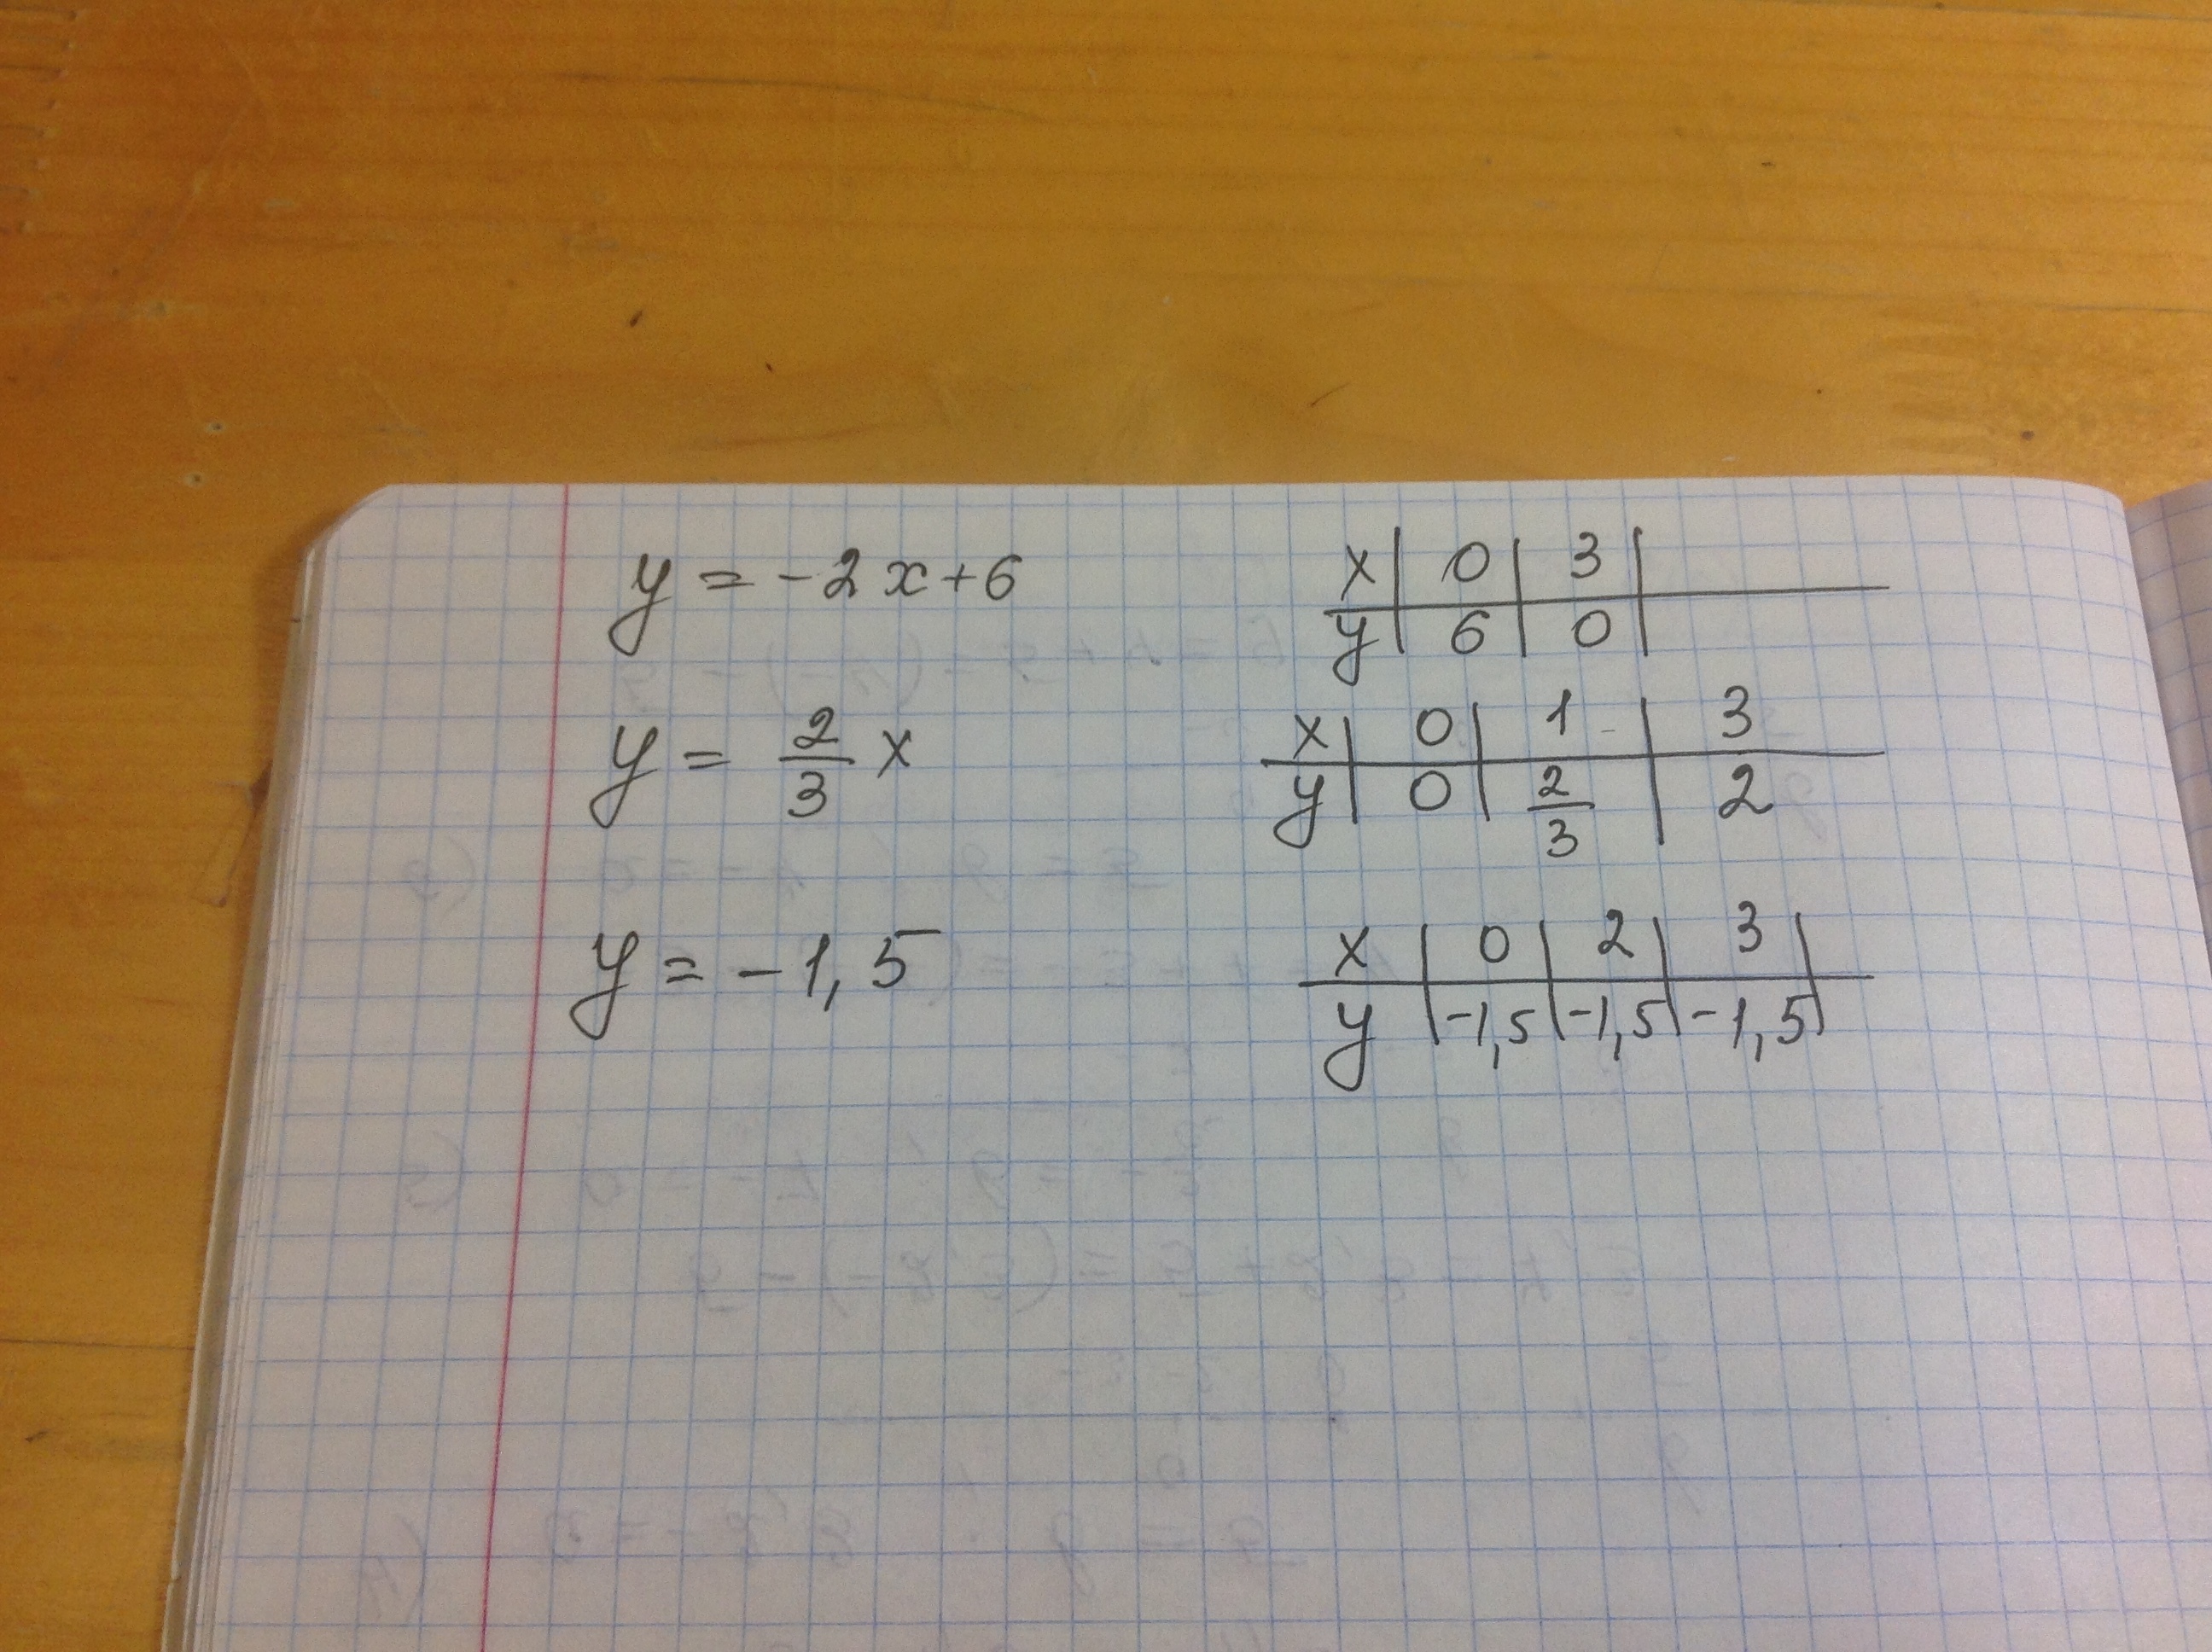 y = -2x+6
x | 0 | 3 |
y | 6 | 0 |
y = 2/3 x
x | 0 | 1 | 3
y | 0 | 2/3 | 2
y = -1,5
x | 0 | 2 | 3 |
y | -1,5 | -1,5 | -1,5 |